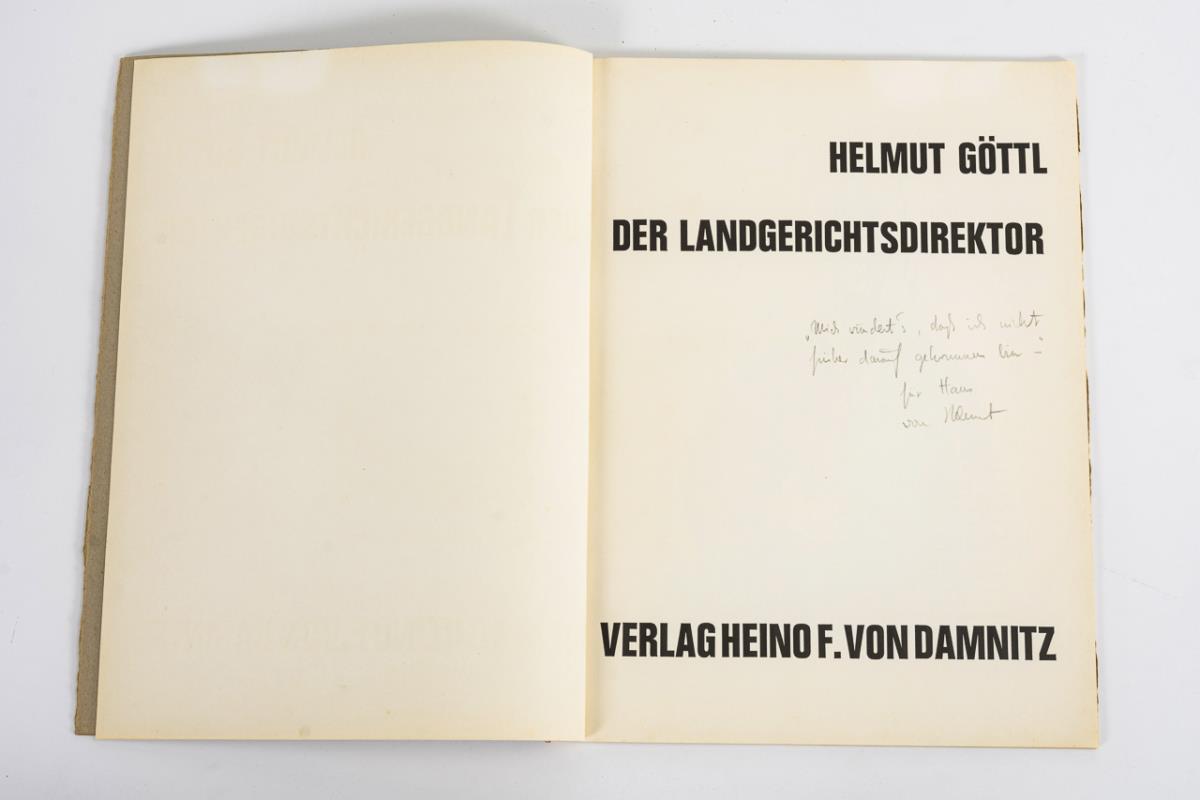 HELMUT GÖTTL
DER LANDGERICHTSDIREKTOR
„Mich wundert's, daß ich nicht
früher darauf gekommen bin –"
für Hans
von Helmut
VERLAG HEINO F. VON DAMNITZ